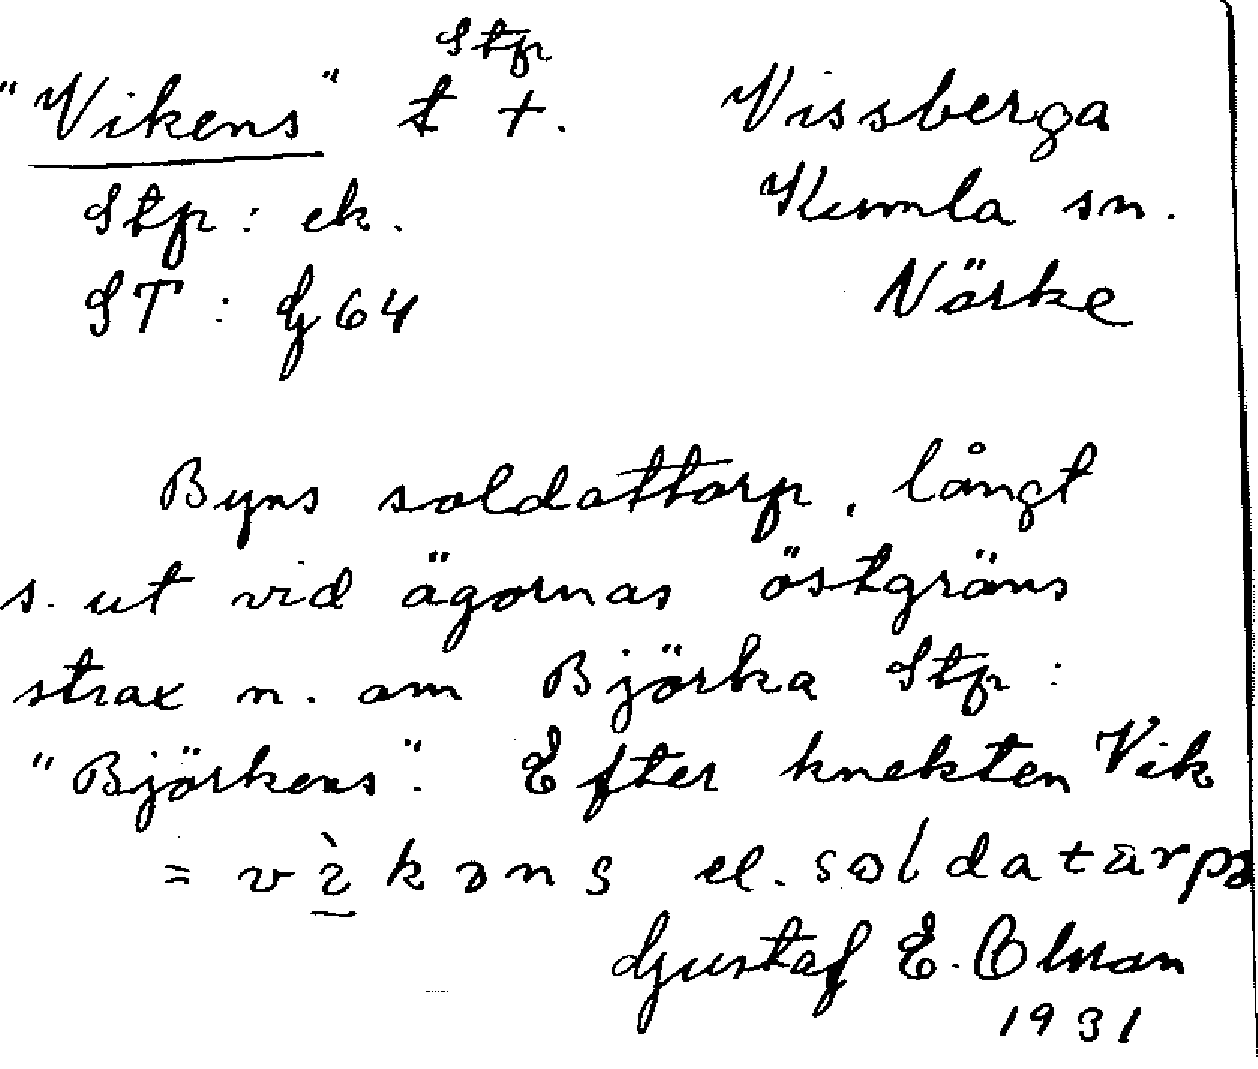 Stp
"Vikens" t +. Vissberga
Stp: ek. Kumla sn.
ST: G 64 Närke
Byns soldattorp, långt
s. ut vid ägornas östgräns
strax n. om Björka Stp:
"Björkens". Efter knekten Vik
= v ì k ə n s el. soldatarpə
Gustaf E. Olman
1931